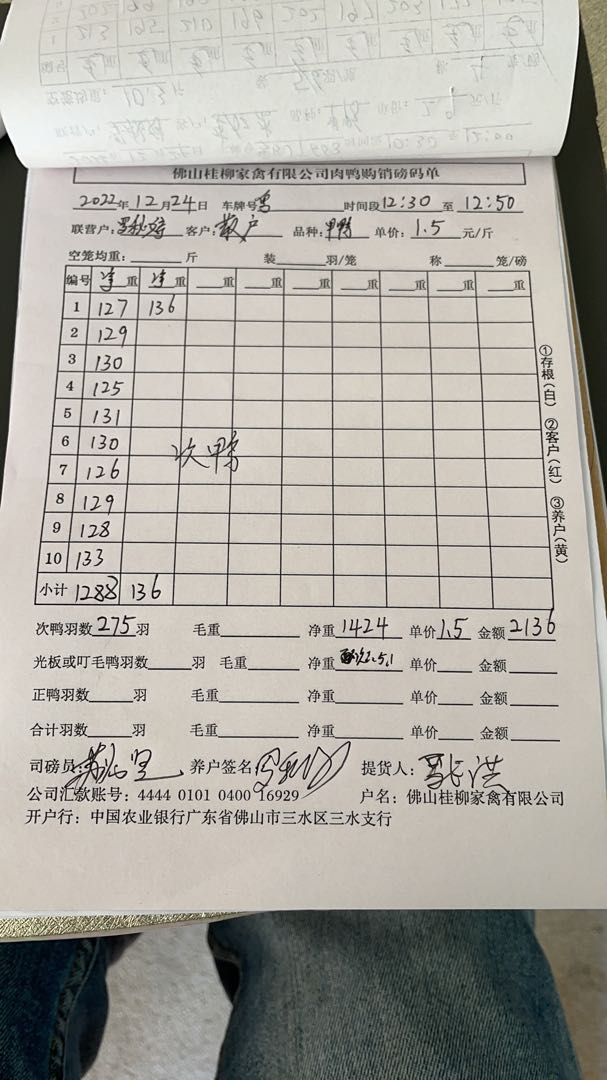 佛山桂柳家禽有限公司肉鸭购销磅码单
2022年12月24日 车牌号 时间段12:30至12:50
联营户: 客户:散户 品种: 单价:1.5元/斤
空笼均重: 斤 装 羽/笼 称 笼/磅
编号 净重 净重 重 重 重 重 重 重 重
1 127 136
2 129
3 130
4 125
5 131
6 130
次鸭
7 126
8 129
9 128
10 133
小计 1288 136
①存根(白) ②客户(红) ③养户(黄)
次鸭羽数275羽 毛重 净重1424 单价1.5 金额2136
光板或叮毛鸭羽数 羽 毛重 净重 单价 金额
正鸭羽数 羽 毛重 净重 单价 金额
合计羽数 羽 毛重 净重 单价 金额
司磅员: 养户签名: 提货人:
公司汇款账号: 4444 0101 0400 16929 户名: 佛山桂柳家禽有限公司
开户行: 中国农业银行广东省佛山市三水区三水支行